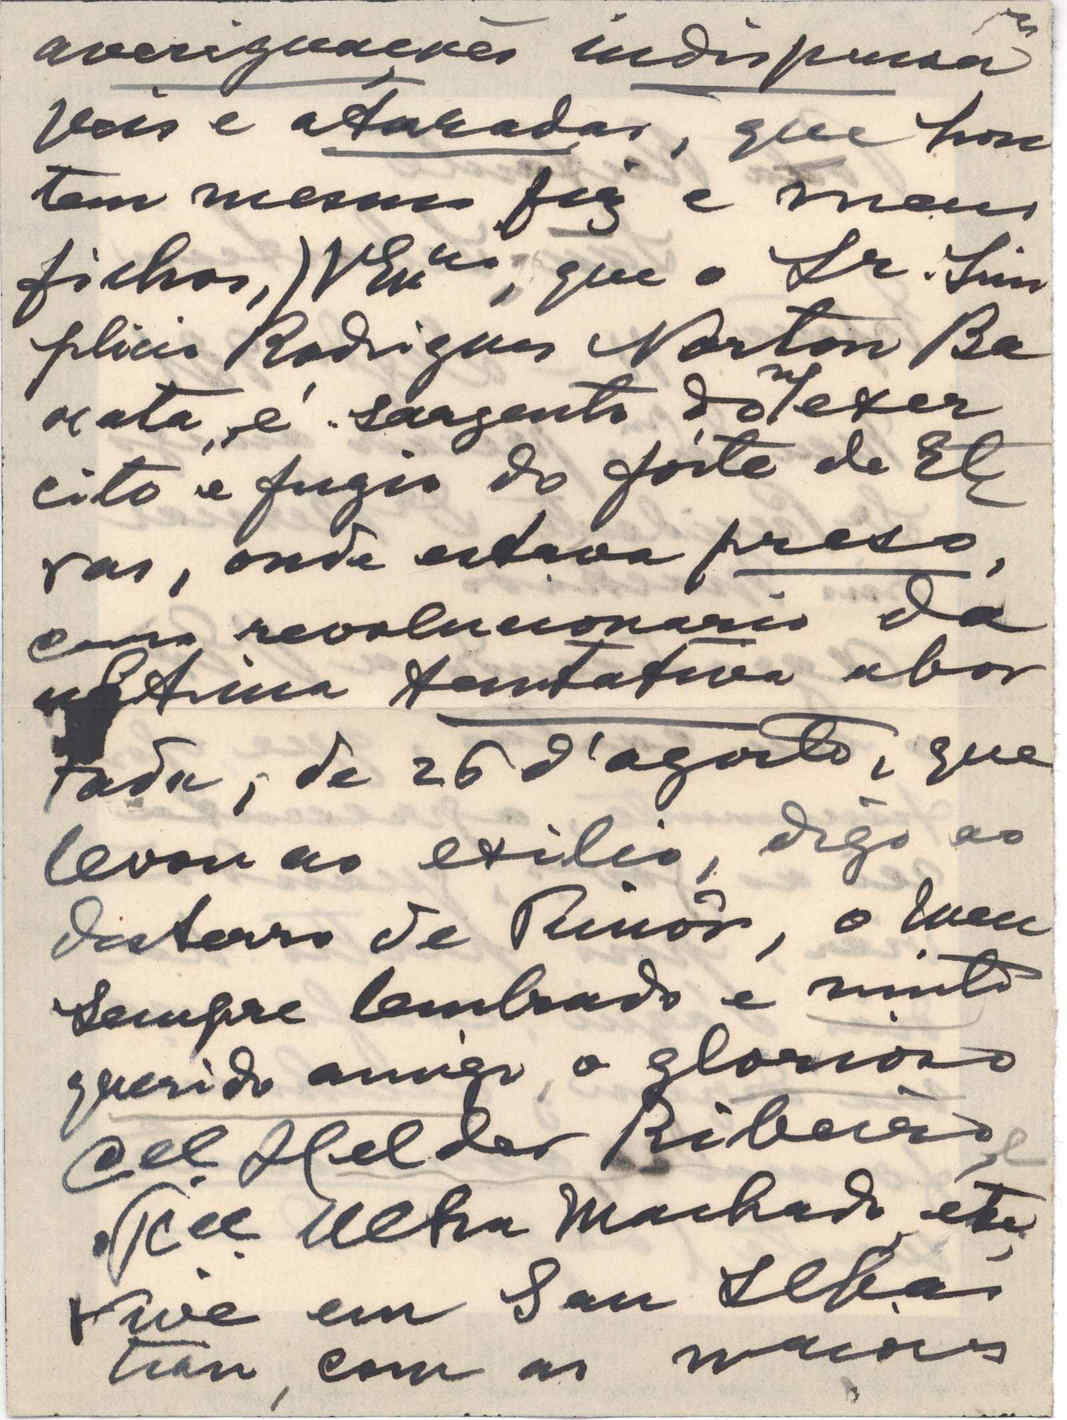 averiguações indispensa
veis e aturadas, que hon
tem mesmo fiz e meus
fichos,) VExcia, que o Sr. Sim
plicio Rodrigues Norton Ba
rata, é sargento do n/ exer
cito e fugio do forte de El
vas, onde estava preso,
como revolucionario da
ultima tentativa abor
tada, de 26 d'agosto, que
levou ao exilio, digo ao
desterro de Timôr, o meu
sempre lembrado e muito
querido amigo, o glorioso
Cel. Helder Ribeiro, e
Cel. Utra Machado, etc,
vive em San Sebas
tian, com as maiores